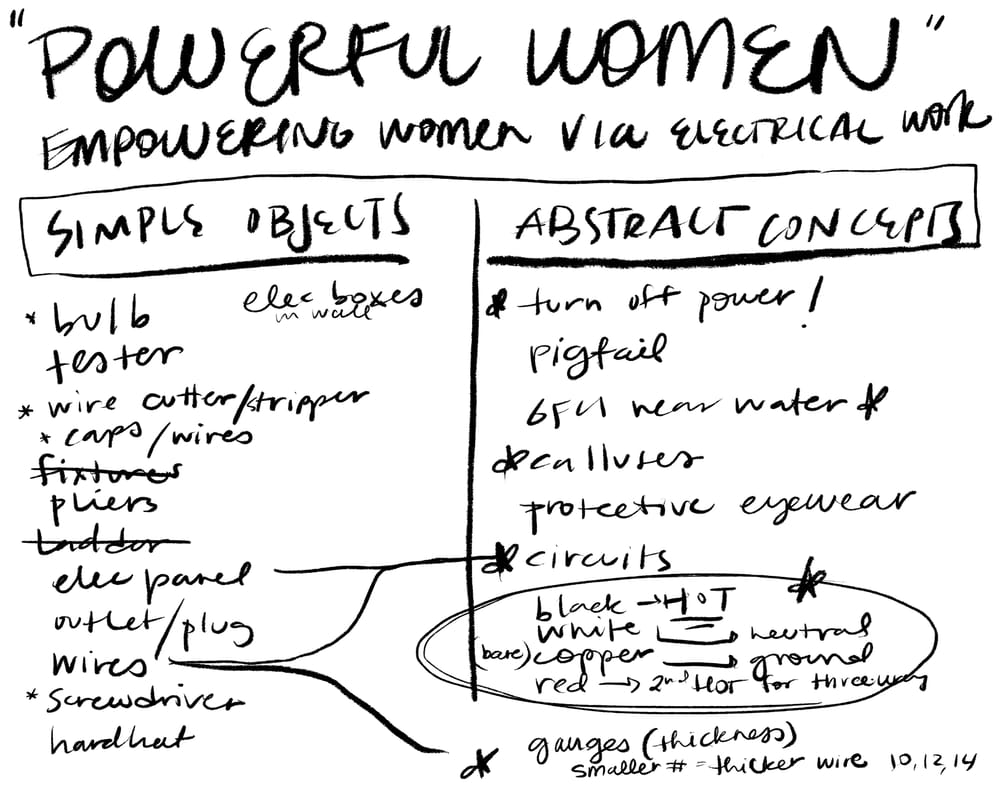 "POWERFUL WOMEN"
EMPOWERING WOMEN VIA ELECTRICAL WORK
SIMPLE OBJECTS
elec boxes
in wall
* bulb
tester
* wire cutter/stripper
* caps/wires
fixtures
pliers
Laddor
elec panel
outlet/plug
wires
* screwdriver
hardhat
ABSTRACT CONCEPTS
* turn off power!
pigtail
GFCI near water *
* calluses
protective eyewear
* circuits
*
black → HOT
white → neutral
(bare) copper → ground
red → 2nd HOT for three way
* gauges (thickness)
smaller # = thicker wire 10, 12, 14